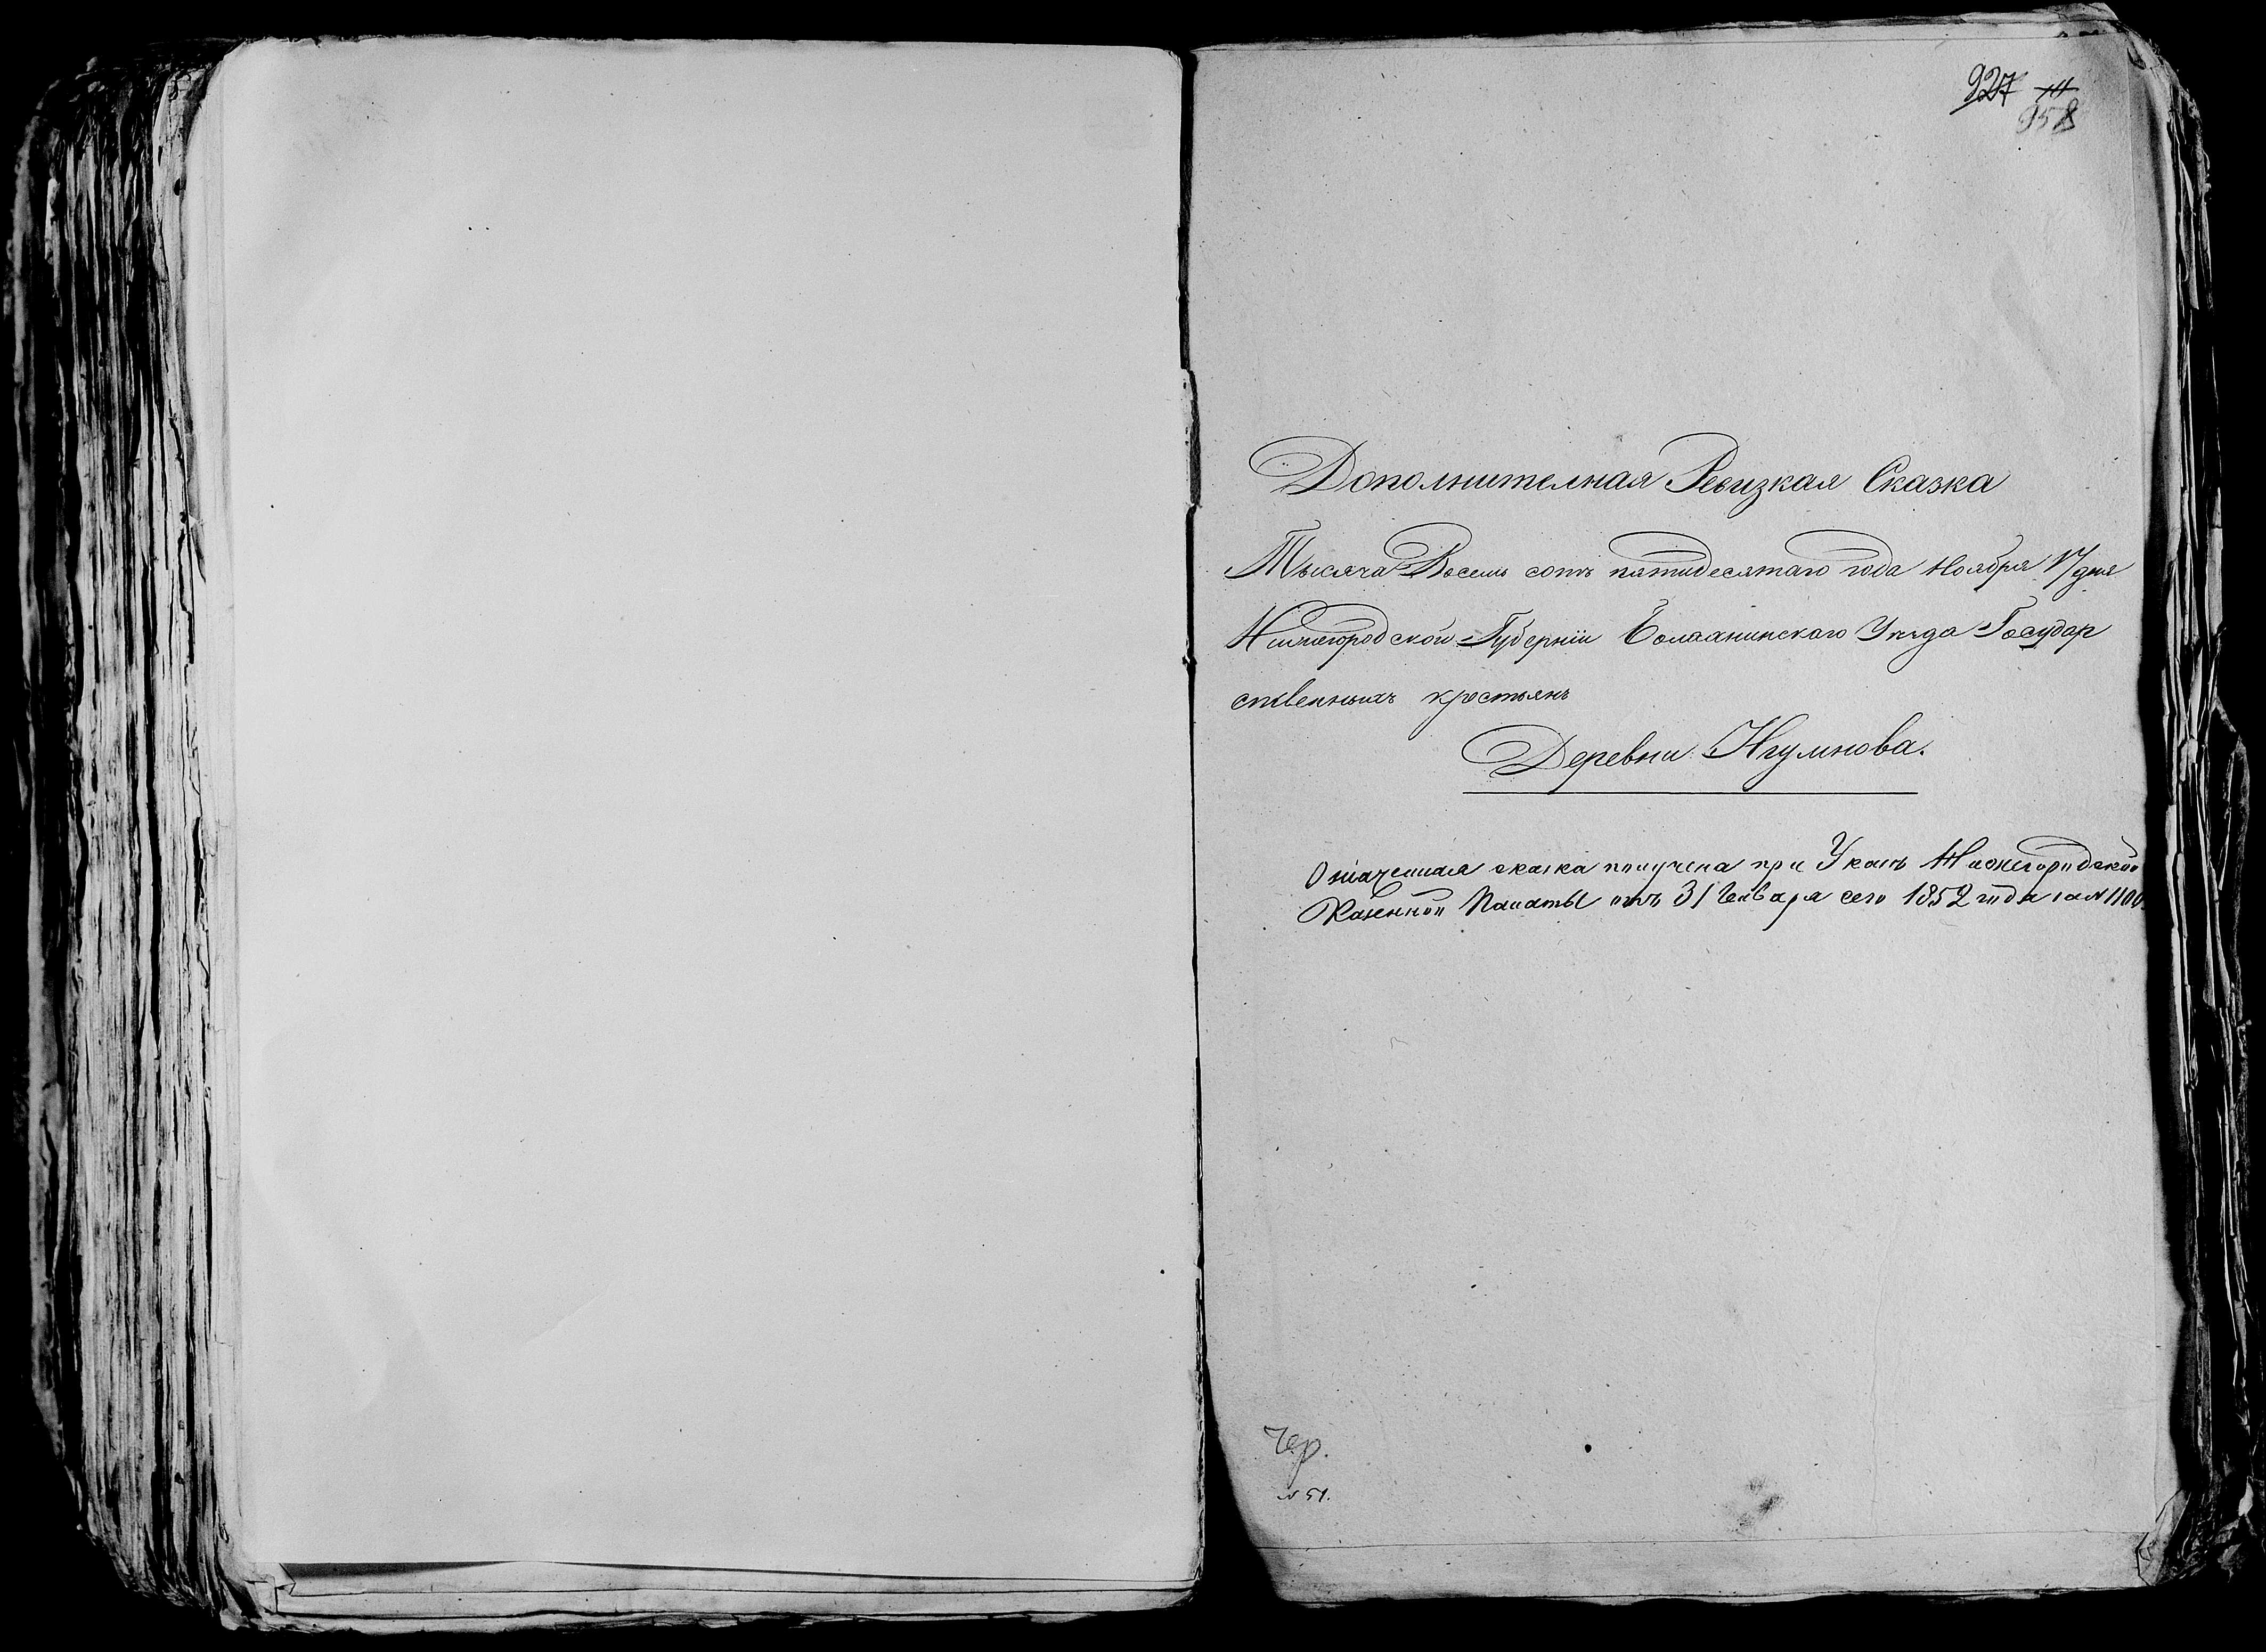 927
958
Дополнителная Ревизкая Сказка
Тысяча Восемь сотъ пятидесятаго года Ноября 17 дня
Нижегородской Губерніи Болаанинскаго Уѣзда Государ
ственныхъ крестьянъ
Деревни Игумнова.
Означенная сказка получена при Указѣ Нижегородской
Казенной Палаты отъ 31 Генваря сего 1852 года за № 1100
Чер.
№ 51.